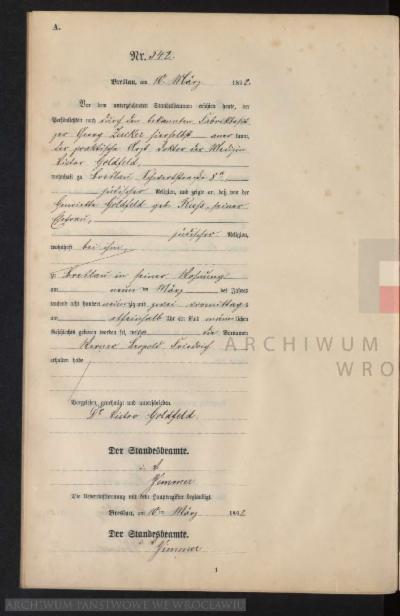 A.
Nr. 342.
Breslau, am 10. März 1892.
Vor dem unterzeichneten Standesbeamten erschien heute, der
Persönlichkeit nach durch den bekannten
Georg hierselbst aner kannt,
der praktische Arzt Doktor der Medizin
Victor Goldfeld,
wohnhaft zu Breslau 
jüdischer Religion, und zeigte an, daß von der
Henriette Goldfeld geb. seiner
Ehefrau,
jüdischer Religion,
wohnhaft bei ihm,
zu Breslau in seiner Wohnung
am neun ten März des Jahres
tausend acht hundert neunzig und zwei Vormittags
um Uhr ein Kind männlichen
Geschlechts geboren worden sei, welches die Vornamen
Werner Leopold Friedrich
erhalten habe
Vorgelesen, genehmigt und unterschrieben
Dr Victor Goldfeld.
Der Standesbeamte.
Die Uebereinstimmung mit dem Hauptregister beglaubigt.
Breslau, am 10ten März 1892
Der Standesbeamte.
1
ARCHIWUM
WRO
ARCHIWUM PAŃSTWOWE WE WROCŁAWIU